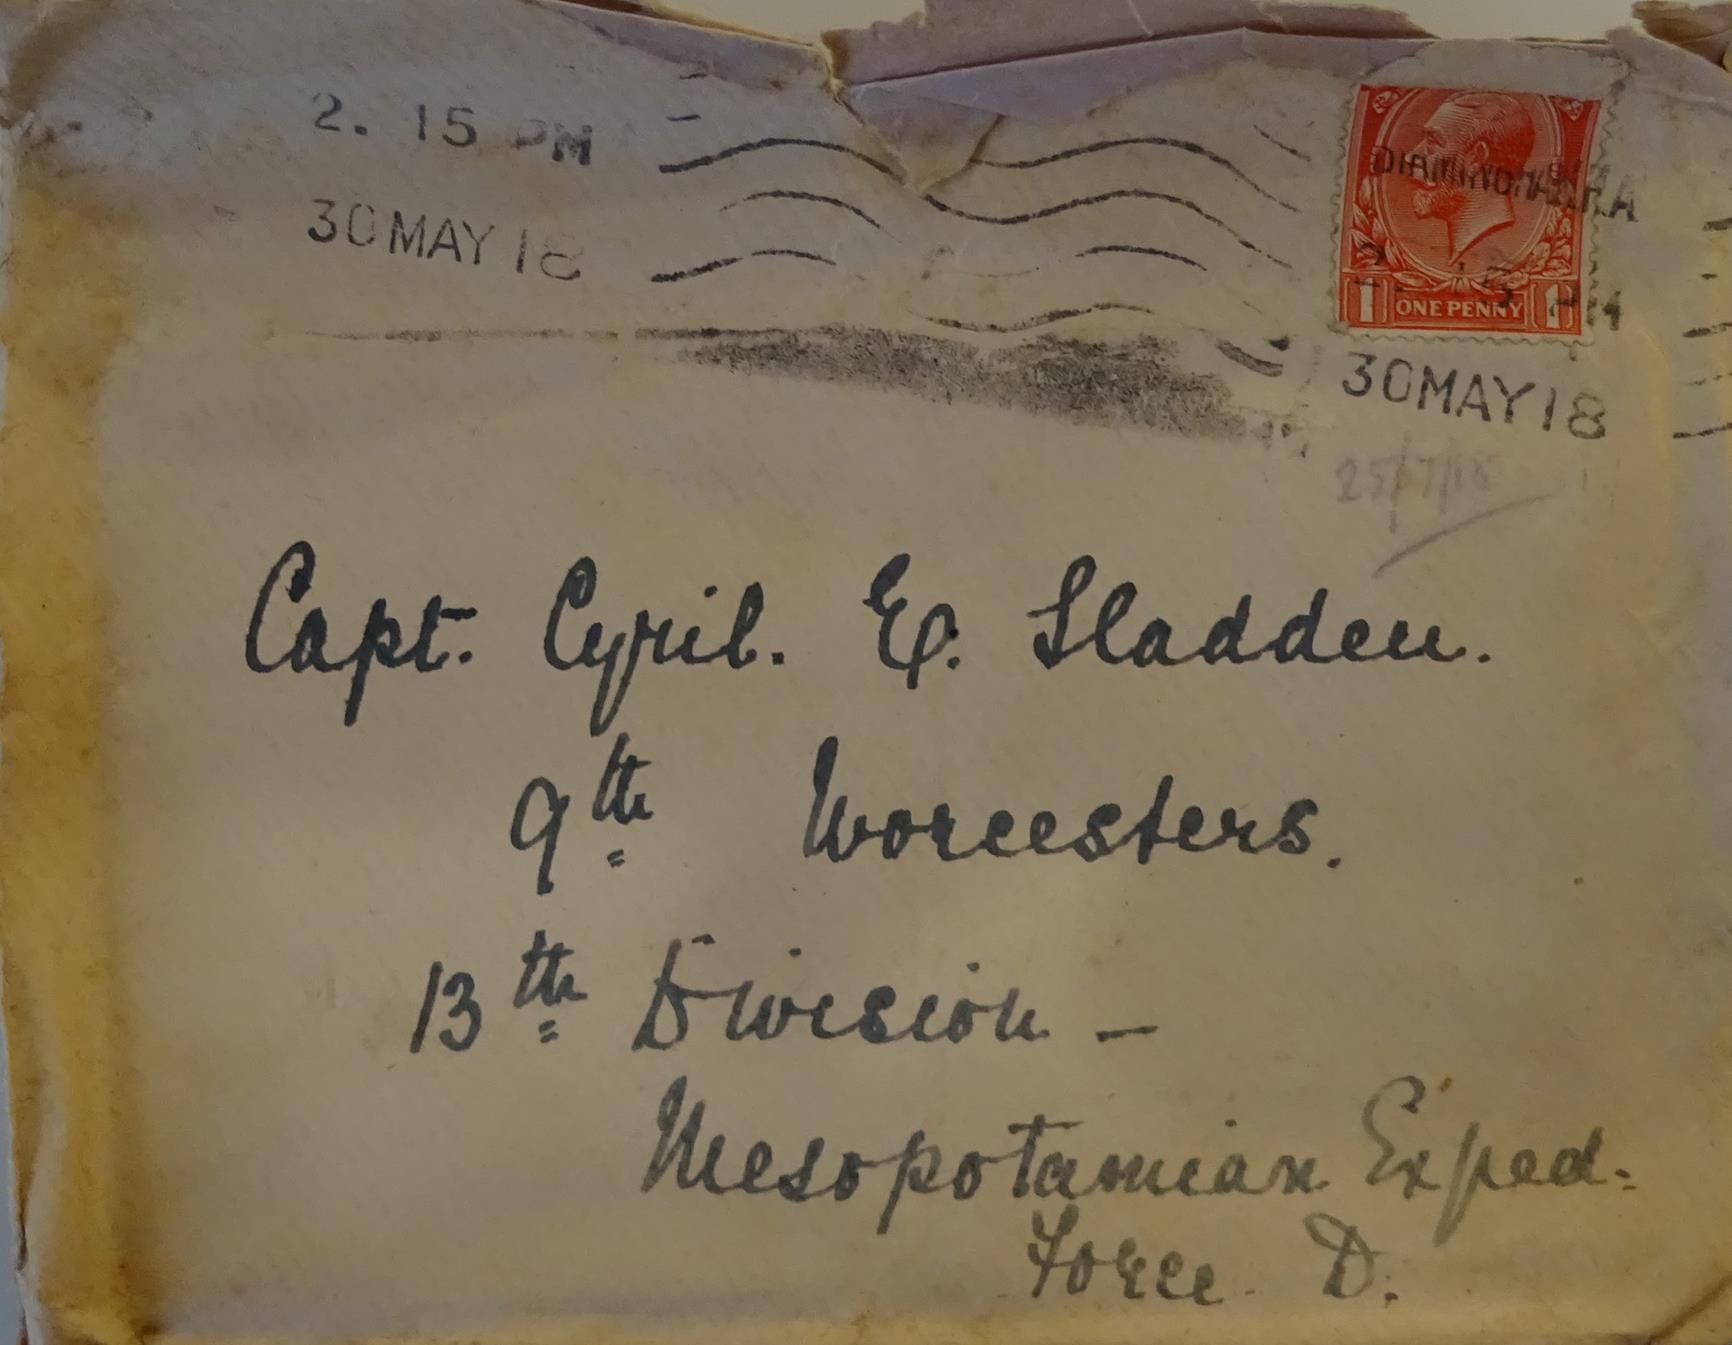 2. 15 PM
30 MAY 18
1 ONE PENNY 1
30 MAY 18
25/7/18
Capt. Cyril. E. Sladden.
9th Worcesters.
13th Division –
Mesopotamian Exped.
Force D.